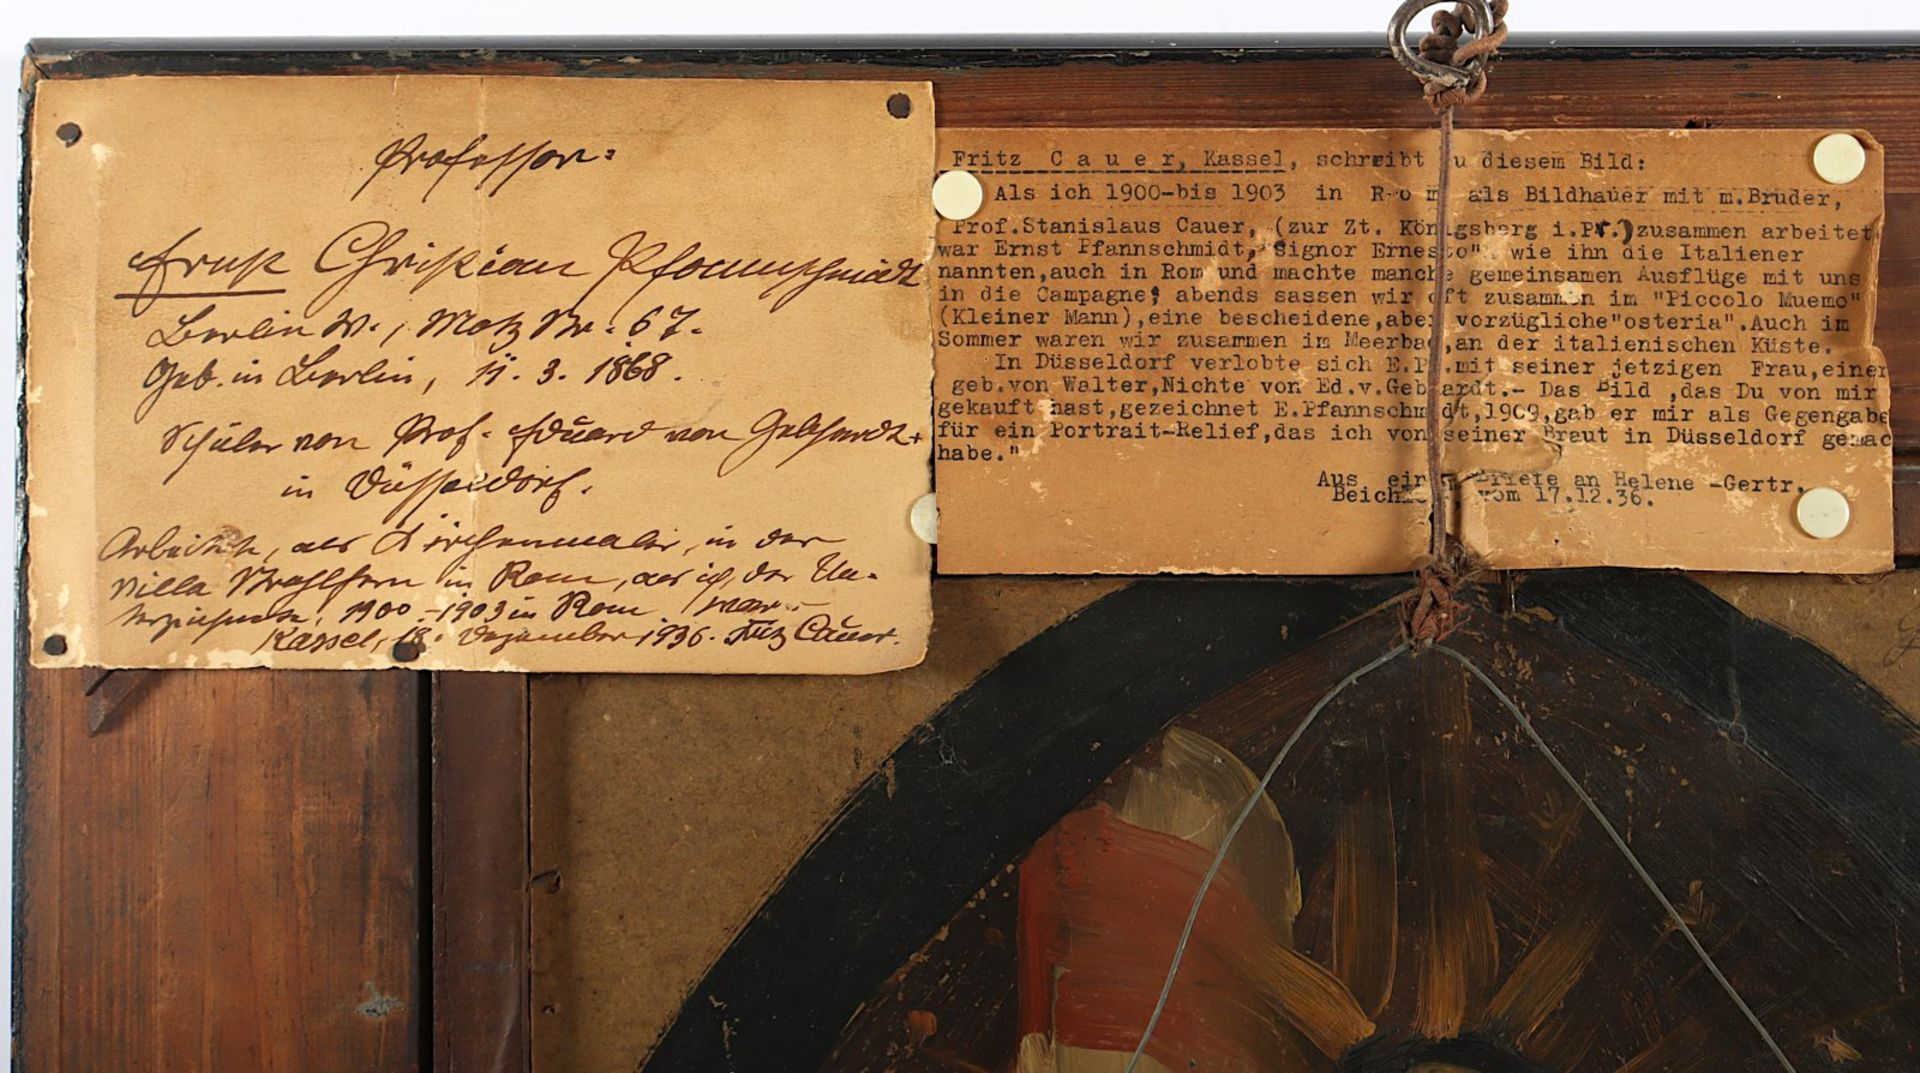 Professor:
Ernst Christian Pfannschmidt
Berlin W., Motz Str. 67.
Geb. in Berlin, 11. 3. 1868.
Schüler von Prof. Eduard von Gebhardt
in Düsseldorf.
Arbeitete, als Kirchenmaler, in der
Villa Strohlfern in Rom, als ich, der Un-
terzeichnete, 1900-1903 in Rom war.
Kassel, 18. Dezember 1936. Fritz Cauer.
Fritz C a u e r, Kassel, schreibt zu diesem Bild:
Als ich 1900-bis 1903 in R o m als Bildhauer mit m.Bruder,
Prof.Stanislaus Cauer, (zur Zt. Königsberg i.Pr.)zusammen arbeitet
war Ernst Pfannschmidt, "Signor Ernesto", wie ihn die Italiener
nannten,auch in Rom und machte manche gemeinsamen Ausflüge mit uns
in die Campagne; abends sassen wir oft zusammen im "Piccolo Muemo"
(Kleiner Mann),eine bescheidene,aber vorzügliche"osteria".Auch im
Sommer waren wir zusammen im Meerbad,an der italienischen Küste.
In Düsseldorf verlobte sich E.Pf.mit seiner jetzigen Frau,einer
geb.von Walter,Nichte von Ed.v.Gebhardt.- Das Bild ,das Du von mir
gekauft hast,gezeichnet E.Pfannschmidt,1909,gab er mir als Gegengabe
für ein Portrait-Relief,das ich von seiner Braut in Düsseldorf gemac
habe."
Aus einem Briefe an Helene -Gertr.
vom 17.12.36.